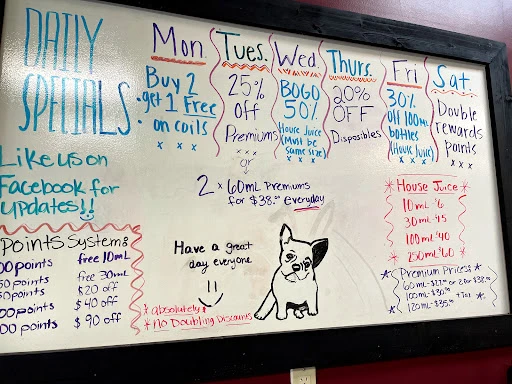 DAILY
SPECIALS
Mon.
Buy 2
get 1 Free
on coils
x x x
Tues.
25%
off
Premiums
x x x
or
2 x 60mL Premiums
for $38.00 everyday
Wed.
BOGO
50%
House Juice
(Must be
same size)
x x x
Thurs.
20%
OFF
Disposibles
Fri
30%
off 100mL
bottles
(House Juice)
x x x
Sat.
Double
rewards
points
x x x
Like us on
Facebook for
updates!!
Points System
00 points free 10mL
50 points free 30mL
points $20 off
00 points $40 off
00 points $90 off
Have a great
day everyone
* absolutely *
No Doubling Discounts
* House Juice *
10mL $6
30mL $15
100mL $40
250mL $60
* Premium Prices *
60mL - or 2 for $38.00
100mL - + Tax
120mL - $35.00